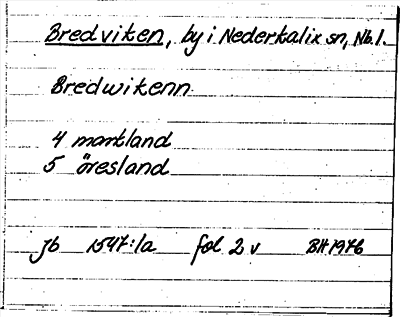 Bredviken, by i Nederkalix sn, Nb. l.
Bredwikenn
4 markland
5 öresland
jb 1547:1a fol. 2 v BH 1976